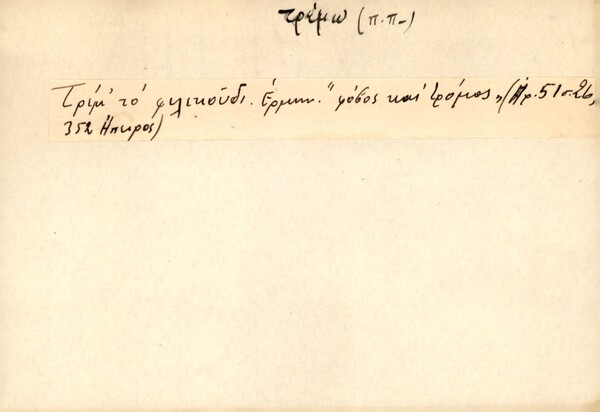 τρέμω (π.π-)
Τρίμ' τὸ φιλικούδι. Ἑρμην. "φόβος καὶ τρόμος" (Ἀρ. 51 σ. 26,
352 Ἤπειρος)